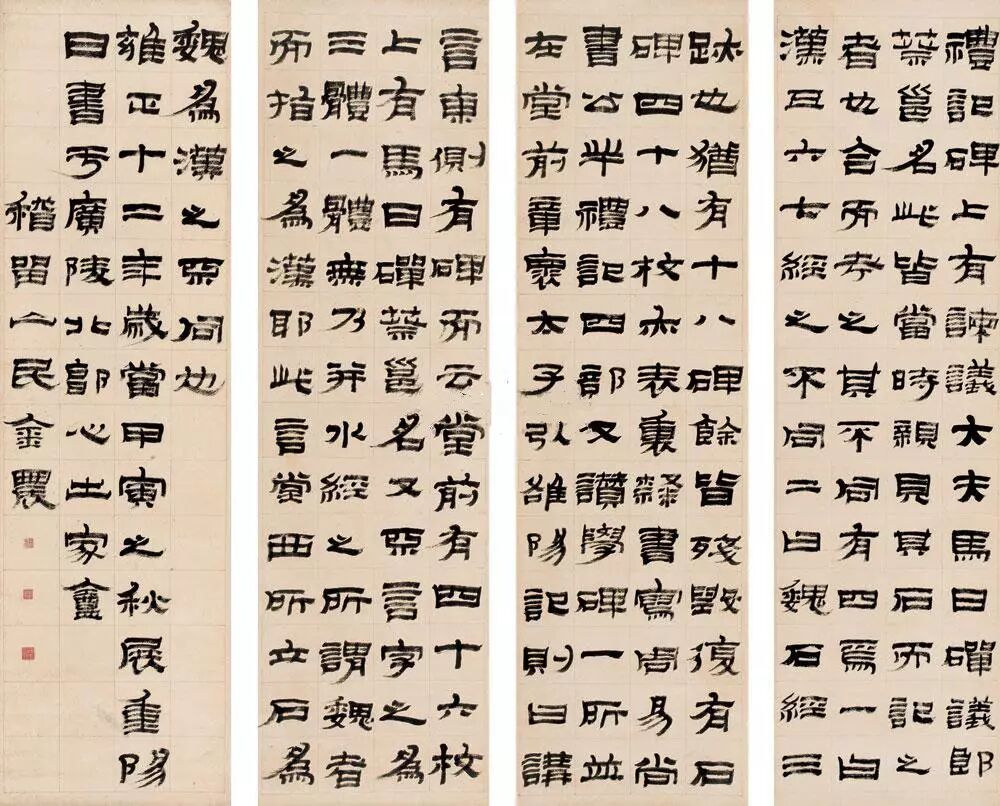 禮記碑上有諫議大夫馬日磾議郎
蔡邕名此皆當時親見其石而記之
者也合而考之其不同有四焉一曰
漢且六七經之不同二曰魏石經三
跌也猶有十八碑餘皆殘毀復有石
碑四十八枚亦表裏隸書寫周易尚
書公羊禮記四部又讚學碑一所並
在堂前章褱太子引雒陽記則曰講
言東側有碑而云堂前有四十六枚
上有馬日磾蔡邕名又亞言字之為
三體一體無乃并水經之所謂魏者
而指之為漢耶此言堂西所立石為
魏為漢之亞
雍正十二年歲當甲寅之秋展重陽
日書于廣陵北郭心出家盦
稽留山民金農